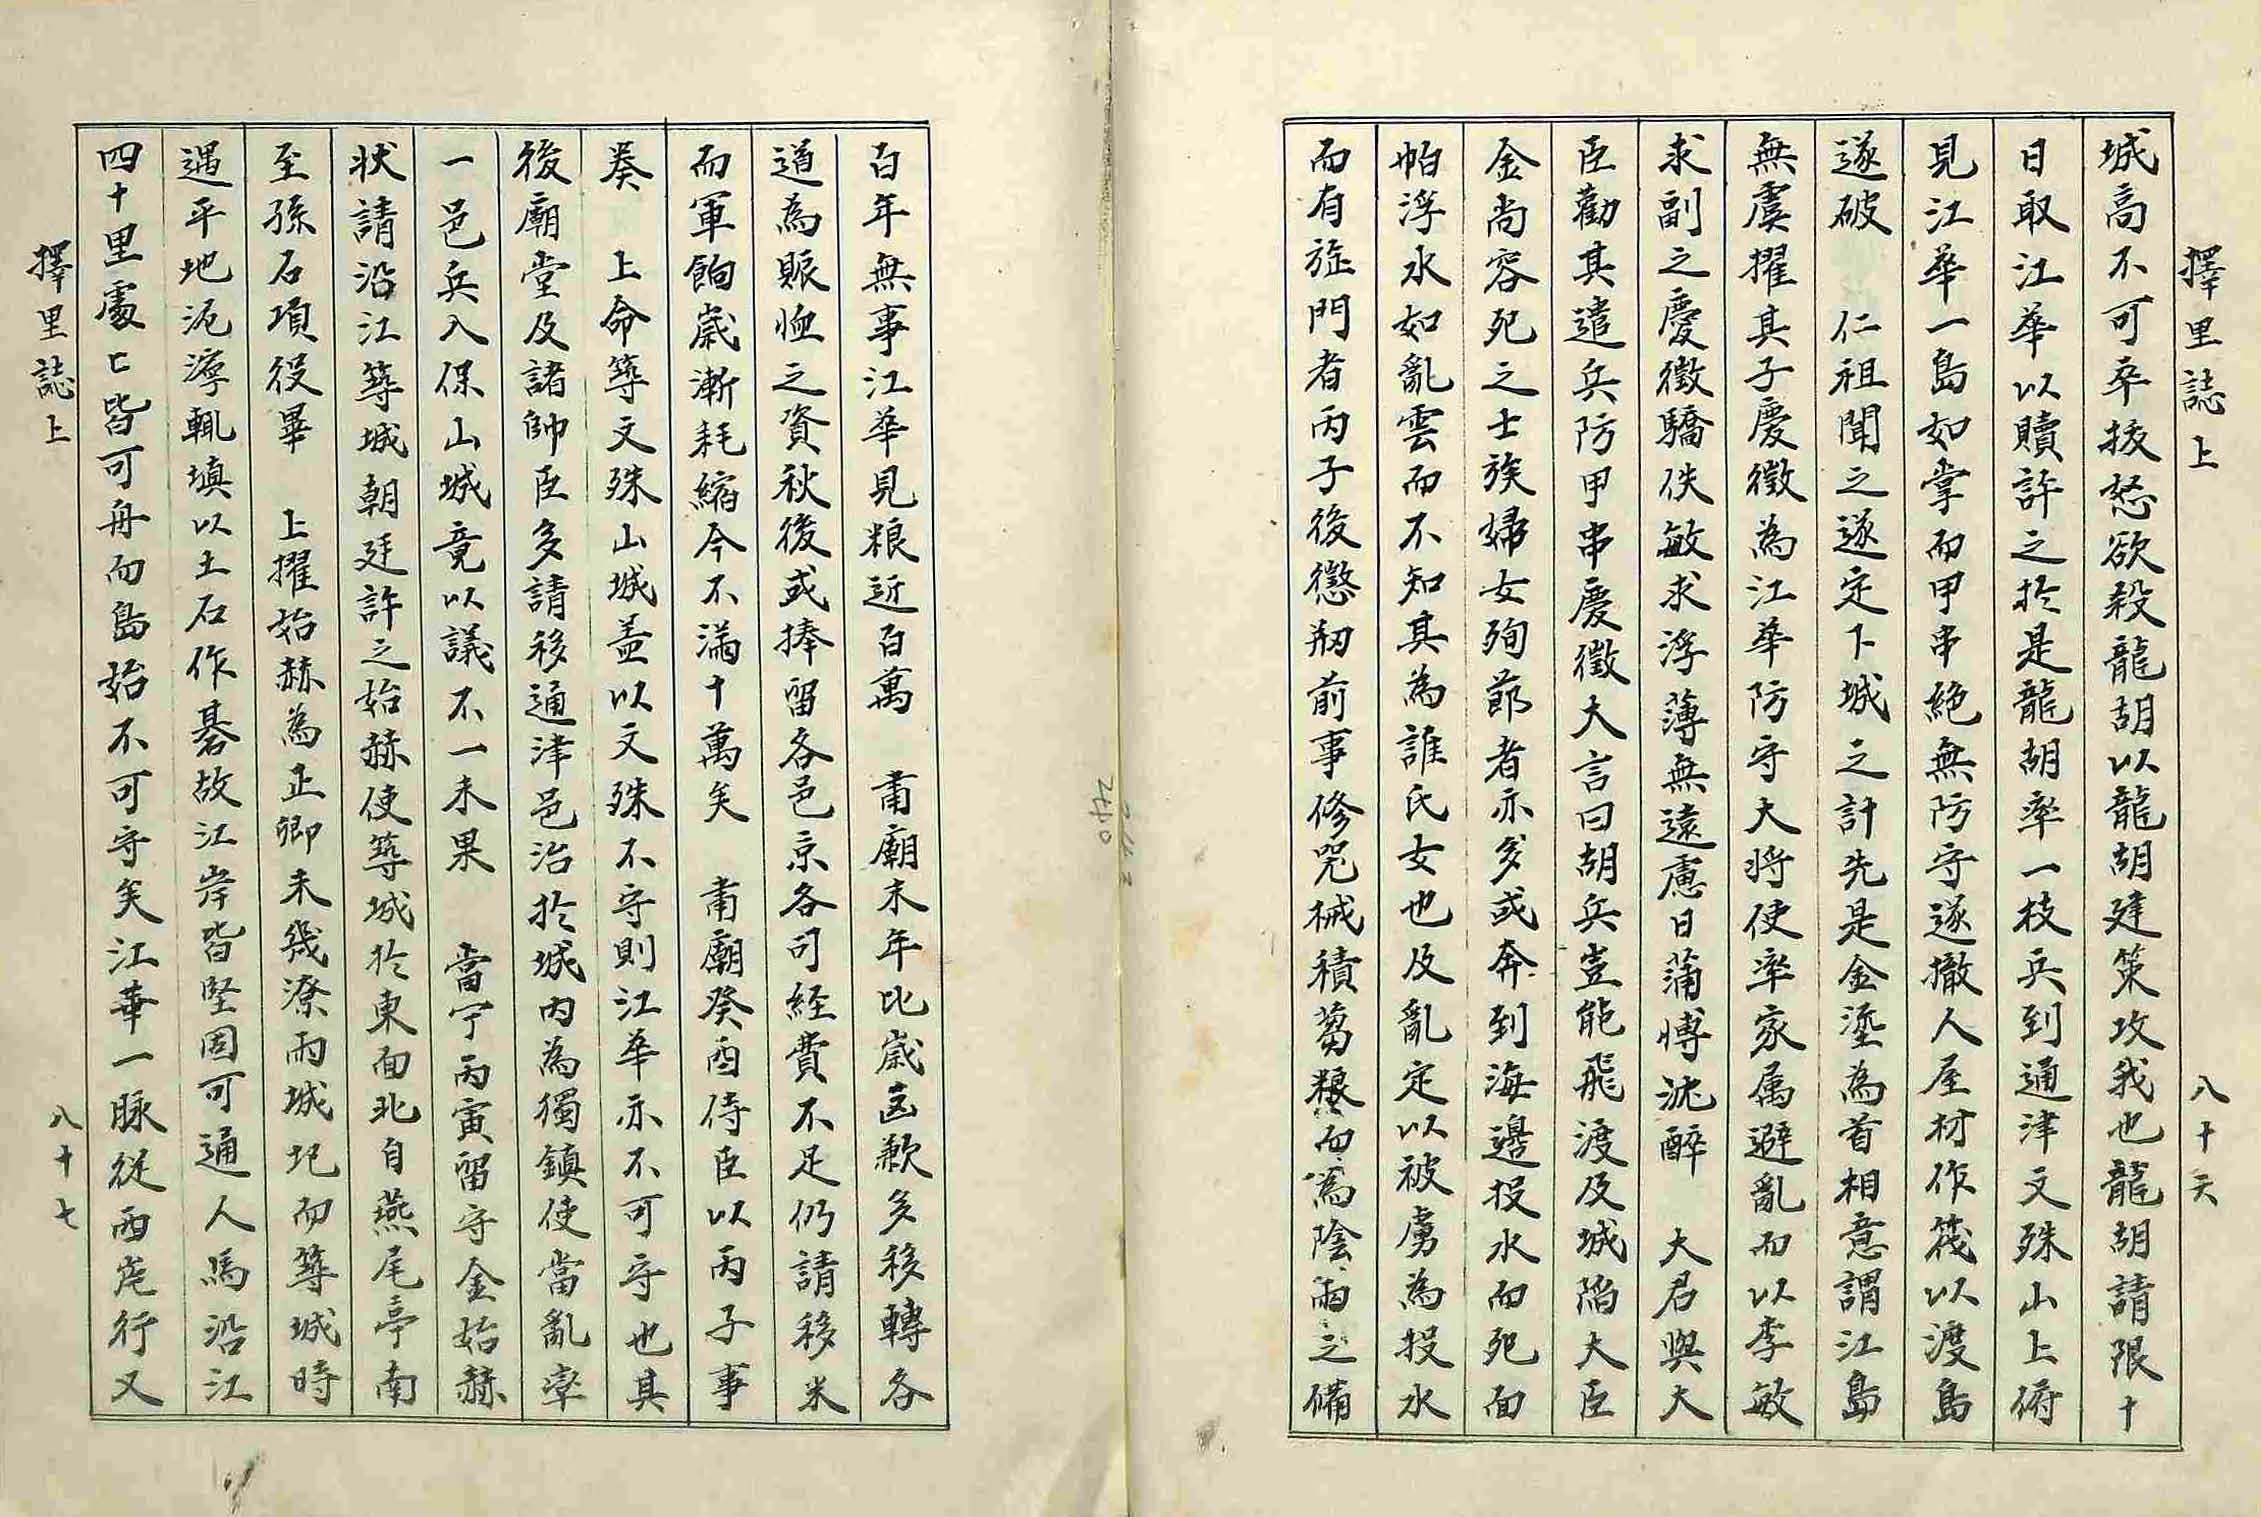 擇里誌上
八十六
城高不可卒拔怒欲殺龍胡以龍胡建策攻我也龍胡請限十
日取江華以贖許之於是龍胡率一枝兵到通津文殊山上俯
見江華一島如掌而甲串絶無防守遂撤人屋材作筏以渡島
遂破　仁祖聞之遂定下城之計先是金瑬為首相意謂江島
無虞擢其子慶徵為江華防守大將使率家属避亂而以李敏
求副之慶徵驕佚敏求浮薄無遠慮日蒲愽沈醉　大君與大
臣勸其遣兵防甲串慶徵大言曰胡兵豈能飛渡及城陷大臣
金尚容死之士族婦女殉節者亦多或奔到海邊投水而死面
帕浮水如亂雲而不知其為誰氏女也及亂定以被虜為投水
而有旋門者丙子後懲剏前事修兕械積芻粮而為陰雨之備
百年無事江華見粮近百萬　肅廟末年比歳凶歉多移轉各
道為賑恤之資秋後或捧留各邑京各司経費不足仍請移米
而軍餉歳漸耗縮今不満十萬矣　肅廟癸酉侍臣以丙子事
奏　上命築文殊山城盖以文殊不守則江華亦不可守也其
後廟堂及諸帥臣多請移通津邑治於城内為獨鎮使當亂率
一邑兵入保山城竟以議不一未果　當宁丙寅留守金始㷜
状請沿江築城朝廷許之始㷜使築城於東面北自燕尾亭南
至孫石項役畢　上擢始㷜為正卿未幾潦雨城圯而築城時
遇平地泥濘輒填以土石作碁故江岸皆堅固可通人馬沿江
四十里處匕皆可舟而島始不可守矣江華一脉從西尨行又
擇里誌上
八十七